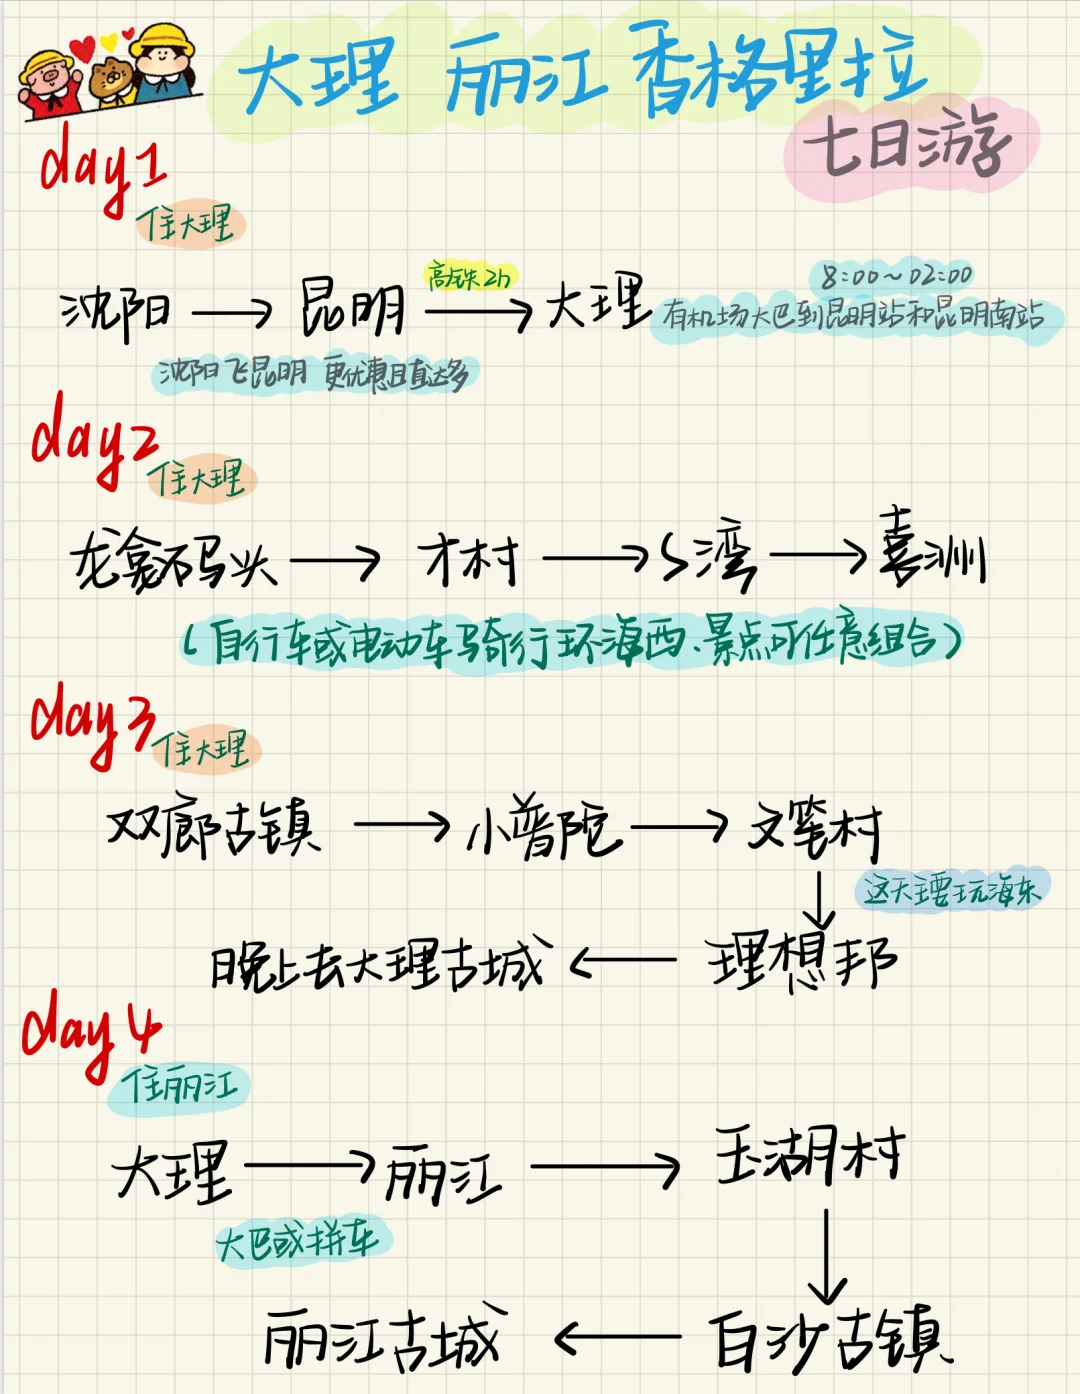 大理 丽江 香格里拉
七日游
day1
住大理
沈阳 → 昆明 高铁2h → 大理
8:00~02:00
有机场大巴到昆明站和昆明南站
沈阳飞昆明 更优惠且直达多
day2
住大理
龙龛码头 → 才村 → S湾 → 喜洲
(自行车或电动车骑行环海西、景点可任意组合)
day3
住大理
双廊古镇 → 小普陀 → 文笔村
↓
这天主要玩海东
晚上去大理古城 ← 理想邦
day4
住丽江
大理 → 丽江 → 玉湖村
大巴或拼车
↓
丽江古城 ← 白沙古镇